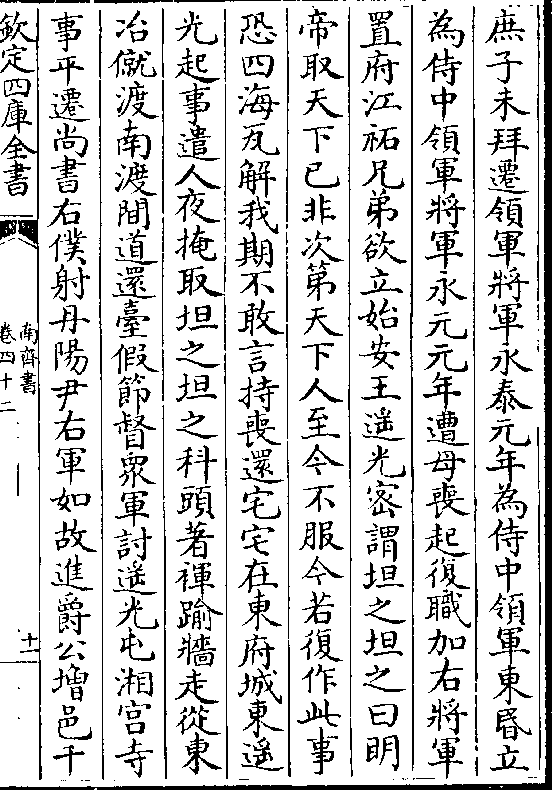 庶子未拜遷領軍將軍永泰元年為侍中領軍東昏立
為侍中領軍將軍永元元年遭母喪起復職加右將軍
置府江祏兄弟欲立始安王遥光密謂坦之坦之曰明
帝取天下已非次第天下人至今不服今若復作此事
恐四海瓦解我期不敢言持喪還宅宅在東府城東遥
光起事遣人夜掩取坦之坦之科頭著褌踰牆走從東
冶僦渡南渡間道還臺假節督衆軍討遥光屯湘宫寺
事平遷尚書右僕射丹陽尹右軍如故進爵公增邑千
欽定四庫全書
南齊書
卷四十二
十一